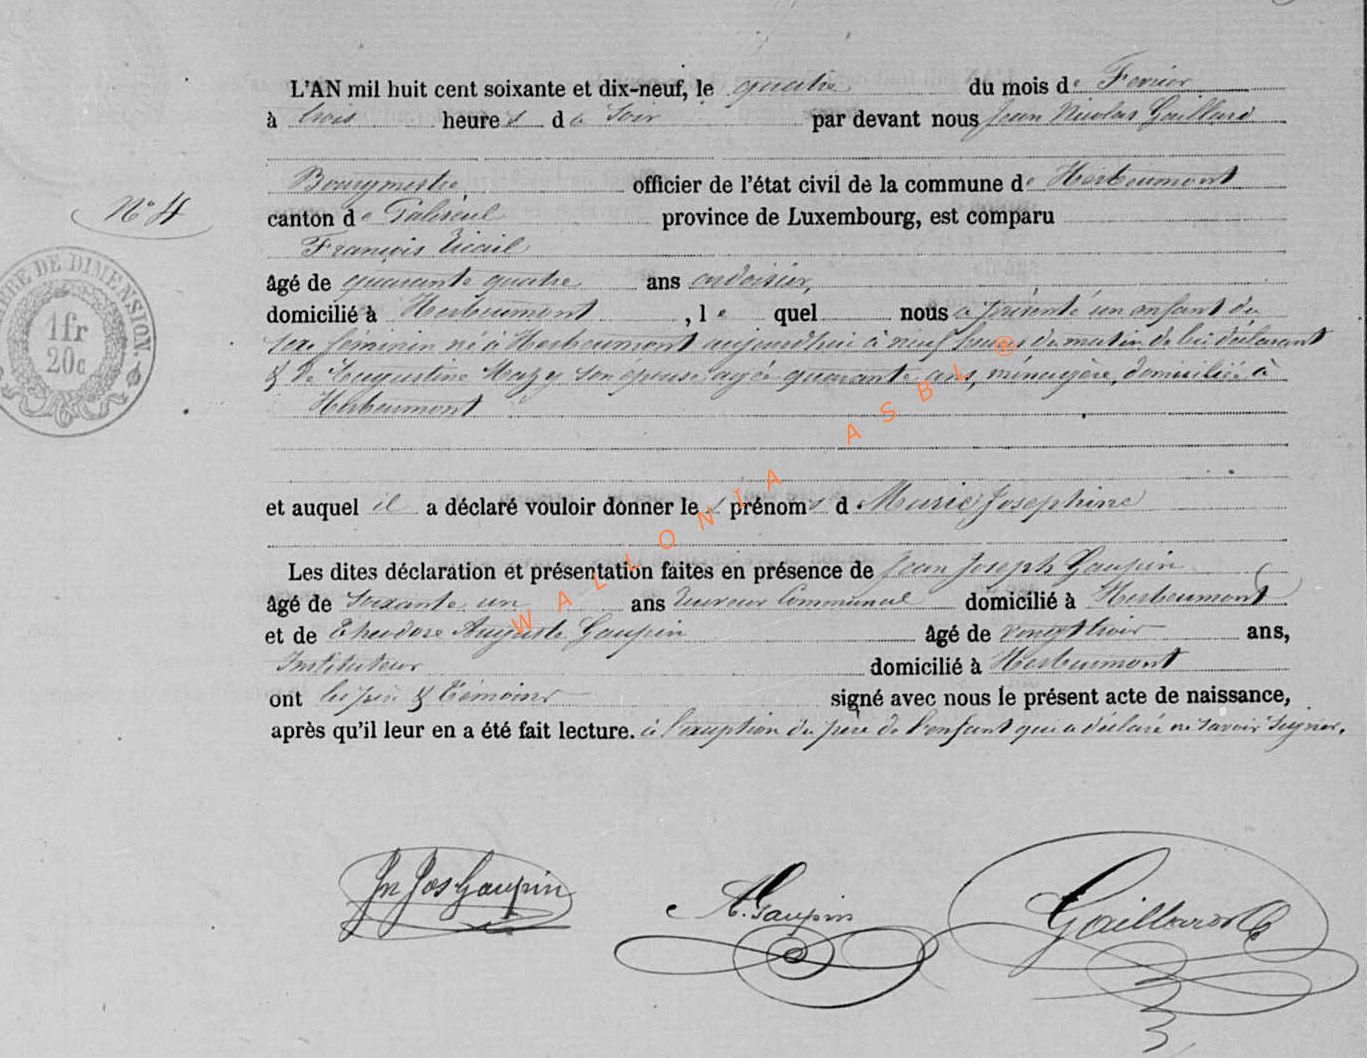 L'AN mil huit cent soixante et dix-neuf, le quatre du mois de Fevrier
à trois heures du Soir par devant nous Jean Nicolas Gaillard
Bourgmestre officier de l'état civil de la commune de Herbeumont
N° 4
canton de Paliseul province de Luxembourg, est comparu
François
âgé de quarante quatre ans ardoisier,
domicilié à Herbeumont, lequel nous a présenté un enfant du
sexe féminin né à Herbeumont aujourd'hui à neuf heures du matin de lui déclarant
& de Augustine son épouse agée quarante ans, ménagère, domiciliée à
Herbeumont
TIMBRE DE DIMENSION.
1fr
20c
et auquel il a déclaré vouloir donner les prénoms d Marie Josephine
Les dites déclaration et présentation faites en présence de Jean Joseph Gaupin
âgé de Soixante un ans Receveur Communal domicilié à Herbeumont
et de Theodore Auguste Gaupin âgé de vingt trois ans,
Instituteur domicilié à Herbeumont
ont les père & témoins signé avec nous le présent acte de naissance,
après qu'il leur en a été fait lecture. à l'exception du père de l'enfant qui a déclaré ne savoir signer.
Jn Jos Gaupin
A. Gaupin
Gaillard
WALLONIA ASBL ®